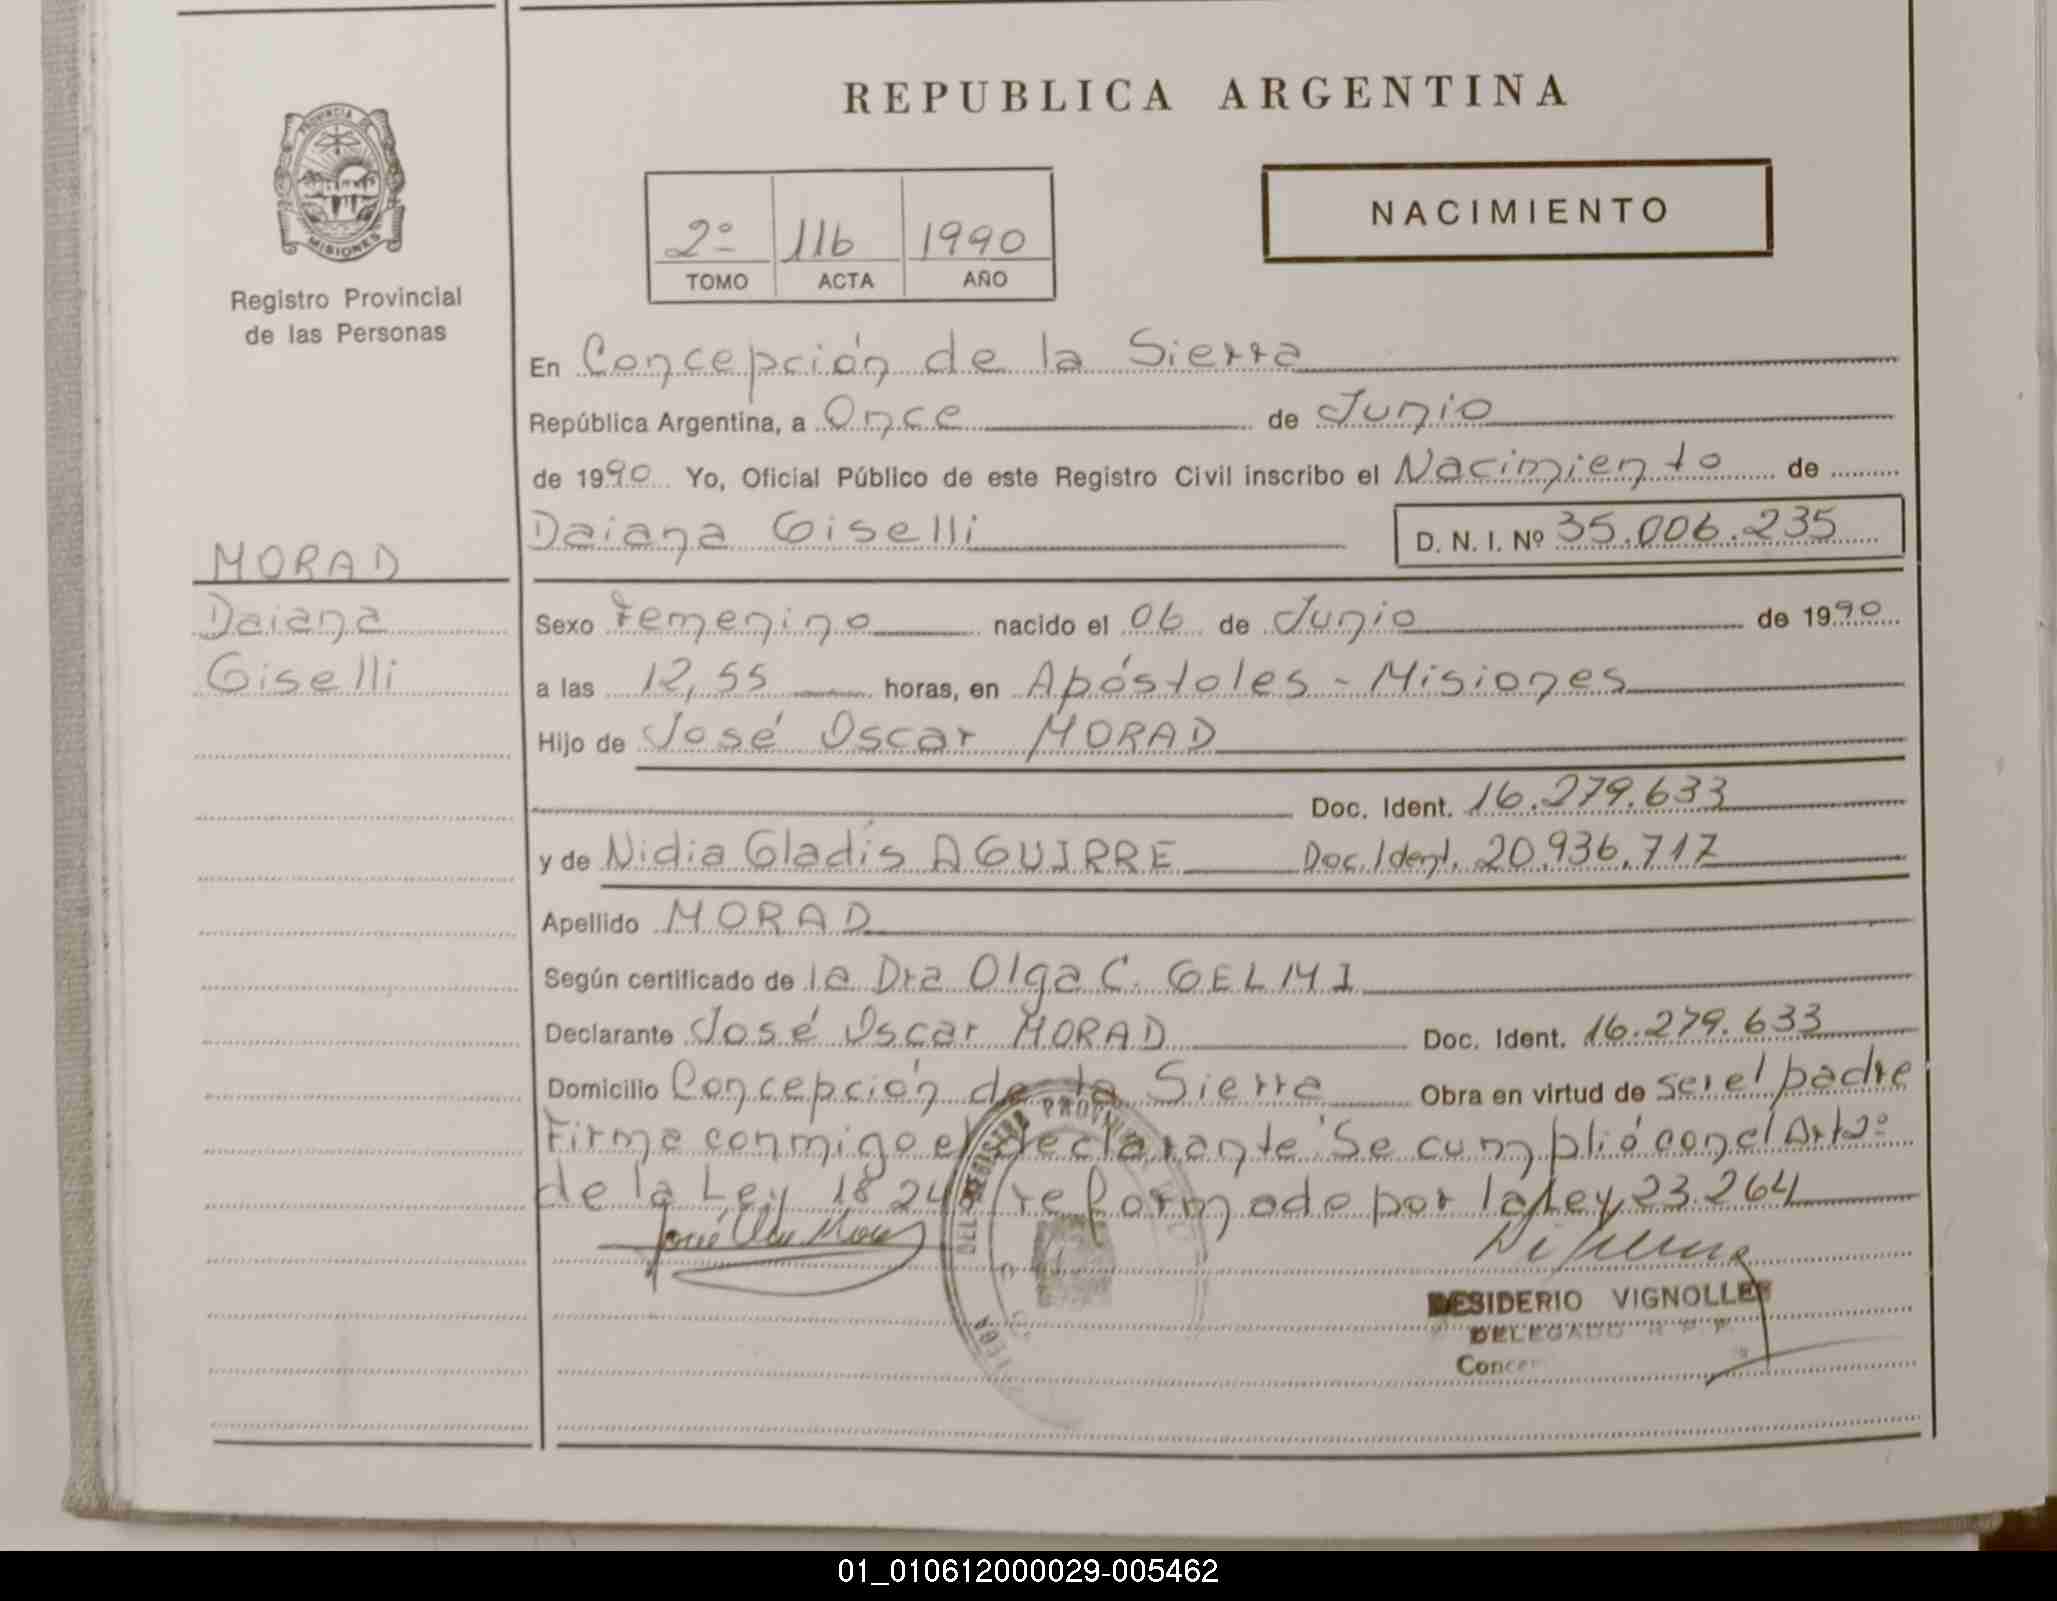 REPUBLICA ARGENTINA
PROVINCIA DE
MISIONES
Registro Provincial
de las Personas
2º 116 1990
TOMO ACTA AÑO
NACIMIENTO
En Concepción de la Sierra
República Argentina, a Once de Junio
de 1990 Yo, Oficial Público de este Registro Civil inscribo el Nacimiento de
Daiana Giselli D. N. I. Nº 35.006.235
MORAD
Daiana
Giselli
Sexo Femenino nacido el 06 de Junio de 1990
a las 12,55 horas, en Apóstoles - Misiones
Hijo de José Oscar MORAD
Doc. Ident. 16.279.633
y de Nidia Gladis AGUIRRE Doc. Ident. 20.936.717
Apellido MORAD
Según certificado de la Dra Olga C. GELMI
Declarante José Oscar MORAD Doc. Ident. 16.279.633
Domicilio Concepción de la Sierra Obra en virtud de ser el padre
Firma conmigo el declarante Se cumplió con el Art 2º
de la Ley 18 24 reformado por la Ley 23.264
DEL REGISTRO
DESIDERIO VIGNOLLES
DELEGADO R. P. P.
01_010612000029-005462